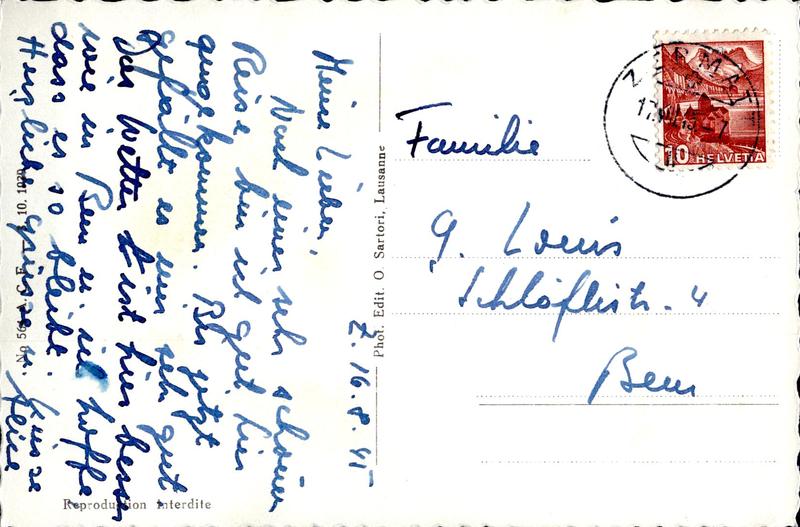 Z. 16.8.45
Meine Lieben,
Nach einer sehr schönen
Reise bin ich gut hier
angekommen. Bis jetzt
gefällt es mir sehr gut
Das Wetter ist hier besser
wie in Bern u. ich hoffe
dass es so bleibt.
Herzliche Grüsse u. Küsse
Familie
G. Louis
Schläflistr. 4
Bern
ZERMATT
10 HELVETIA
Phot. Edit. O. Sartori, Lausanne
A. C. F.
10. 1029
Reproduction interdite